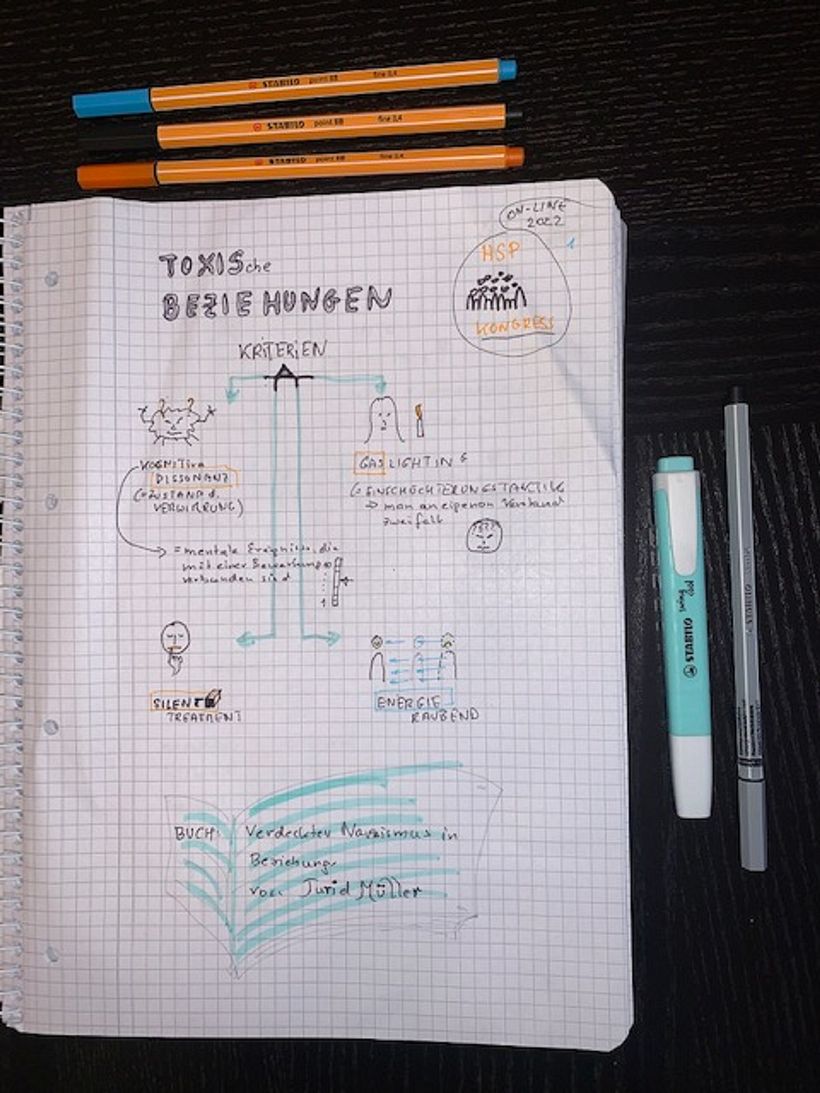 STABILO point 88 fine 0,4
STABILO point 88 fine 0,4
STABILO point 88 fine 0,4
ON-LINE
2022
1
HSP
KONGRESS
TOXISche
BEZIEHUNGEN
KRiTERiEN
KOGNiTive
DISSONANZ
(=ZUSTAND d.
VERWIRRUNG)
= mentale Ereignisse, die
mit einer Bewertung
verbunden sind
1
GASLIGHTING
EINSCHÜCHTERUNGSTAKTIK
→ man an eigenen Verstand
zweifelt
????
SILENT
TREATMENT
ENERGIE
RAUBEND
BUCH:
Verdeckter Narzismus in
Beziehung
von Turid Müller
STABILO swing cool
STABILO